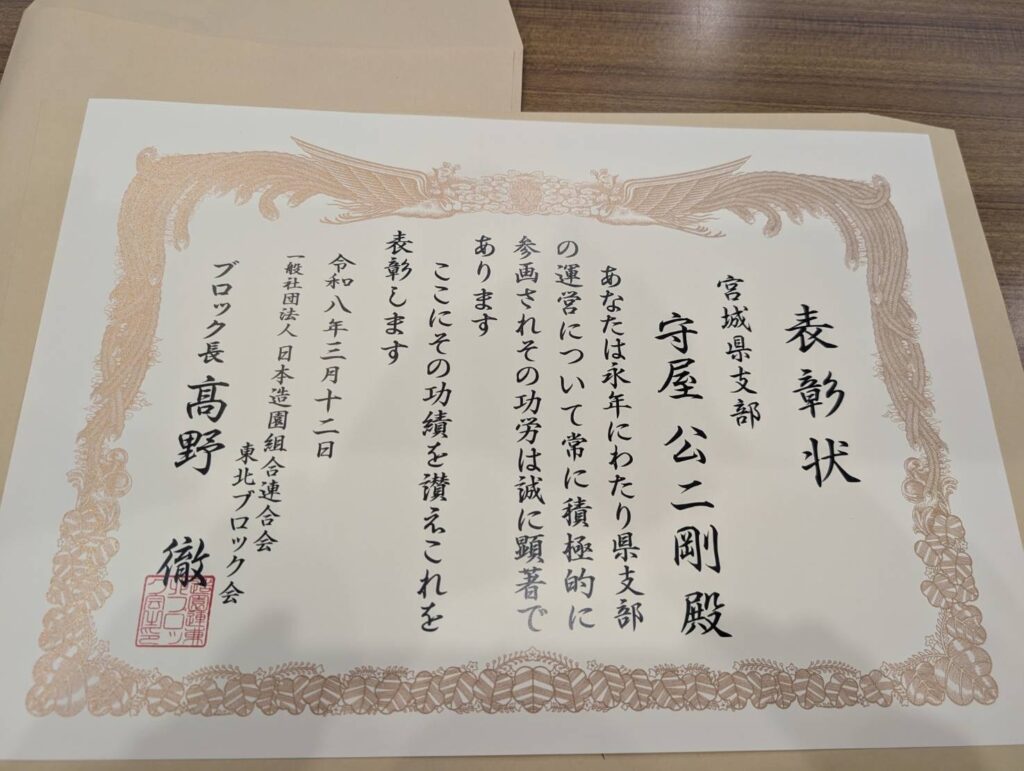 表彰状
宮城県支部
守屋公二剛殿
あなたは永年にわたり県支部
の運営について常に積極的に
参画されその功労は誠に顕著で
あります
ここにその功績を讃えこれを
表彰します
令和八年三月十二日
一般社団法人 日本造園組合連合会
東北ブロック会
ブロック長 髙野 徹